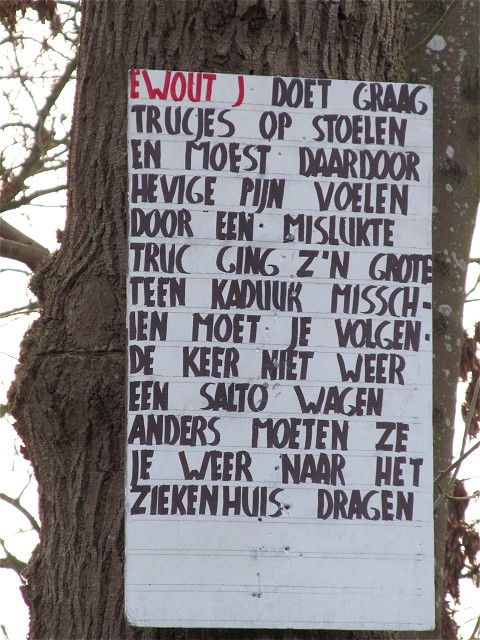 EWOUT J DOET GRAAG
TRUCJES OP STOELEN
EN MOEST DAARDOOR
HEVIGE PIJN VOELEN
DOOR EEN MISLUKTE
TRUC GING Z'N GROTE
TEEN KADUUK MISSCH-
IEN MOET JE VOLGEN-
DE KEER NIET WEER
EEN SALTO WAGEN
ANDERS MOETEN ZE
JE WEER NAAR HET
ZIEKENHUIS DRAGEN